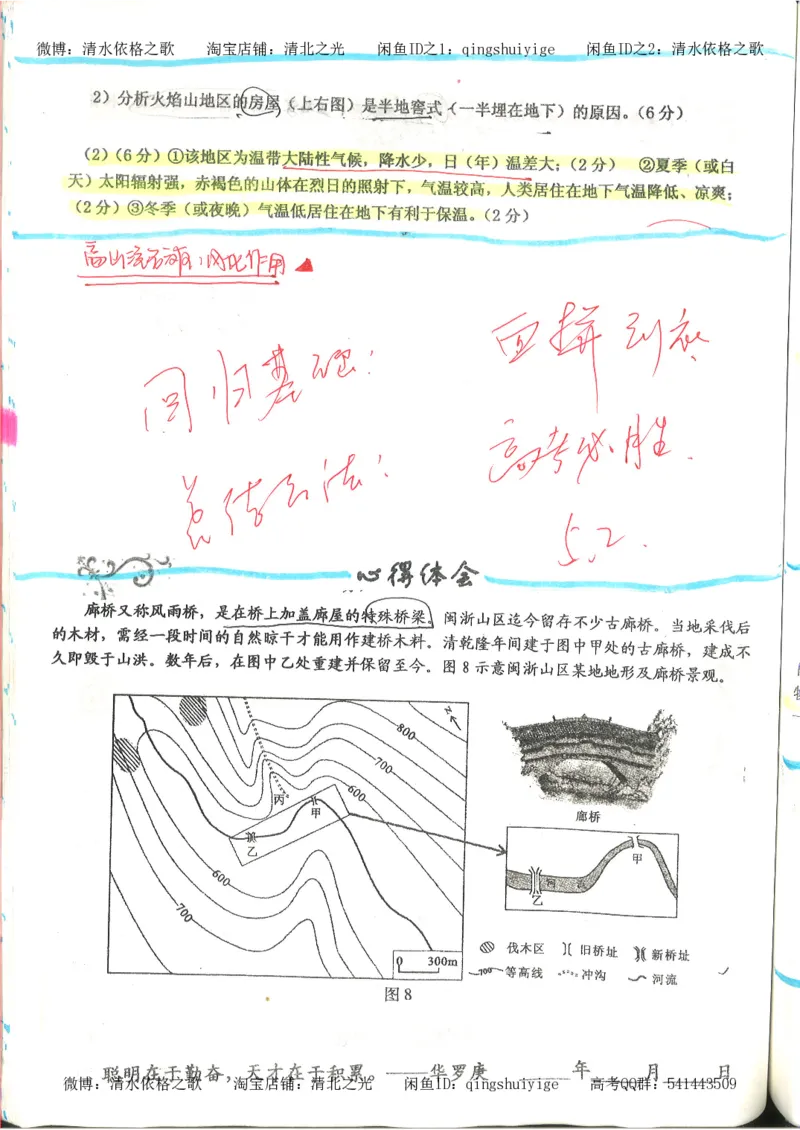 微博：清水依格之歌 淘宝店铺：清北之光 闲鱼ID之1：qingshuiyige 闲鱼ID之2：清水依格之歌
2）分析火焰山地区的房屋（上右图）是半地窖式（一半埋在地下）的原因。（6分）
（2）（6分）①该地区为温带大陆性气候，降水少，日（年）温差大；（2分） ②夏季（或白
天）太阳辐射强，赤褐色的山体在烈日的照射下，气温较高，人类居住在地下气温降低、凉爽；
（2分）③冬季（或夜晚）气温低居住在地下有利于保温。（2分）
回归基础！
面拼到底
高考必胜.
5.2.
心得体会
廊桥又称风雨桥，是在桥上加盖廊屋的特殊桥梁。闽浙山区迄今留存不少古廊桥。当地采伐后
的木材，需经一段时间的自然晾干才能用作建桥木料。清乾隆年间建于图中甲处的古廊桥，建成不
久即毁于山洪。数年后，在图中乙处重建并保留至今。图8示意闽浙山区某地地形及廊桥景观。
N
800
700
600
丙
甲
乙
600
700
0 300m
廊桥
甲
河
乙
伐木区 旧桥址 新桥址
700 等高线 冲沟 河流
图8
聪明在于勤奋，天才在于积累。——华罗庚 年 月 日
微博：清水依格之歌 淘宝店铺：清北之光 闲鱼ID：qingshuiyige 高考QQ群：541443509